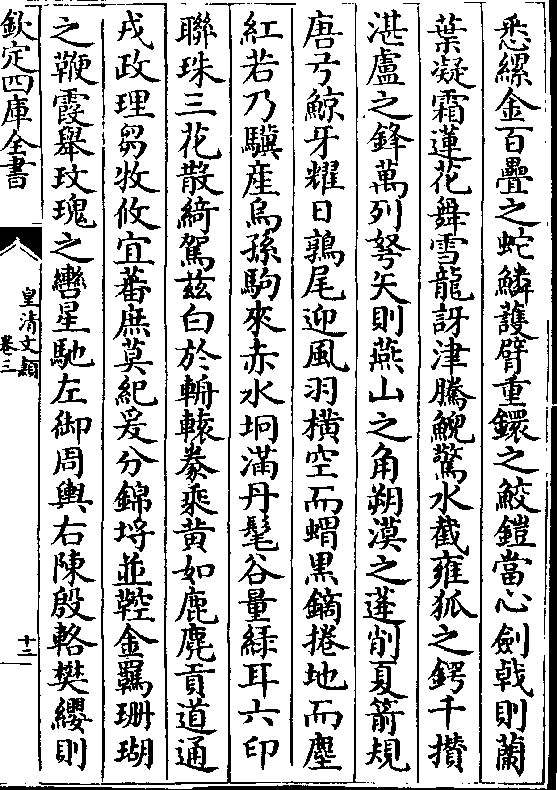 悉縲金百疊之蛇鱗護臂重鐶之鮫鎧當心劍戟則蘭
葉凝霜蓮花舞雪龍訝津騰鯢驚水截雍狐之鍔千攢
湛盧之鋒萬列弩矢則燕山之角朔漠之蓬削夏箭規
唐弓鯨牙耀日鶉尾迎風羽橫空而蝟黑鏑捲地而塵
紅若乃驥產烏孫駒來赤水坰滿丹髦谷量綠耳六印
聯珠三花散綺駕茲白於輈轅豢乘黃如鹿麂貢道通
戎政理芻牧攸宜蕃庶莫紀爰分錦埒並鞚金羈珊瑚
之鞭霞舉玫瑰之轡星馳左御周輿右陳殷輅樊纓則
欽定四庫全書
皇清文穎
卷三
十二